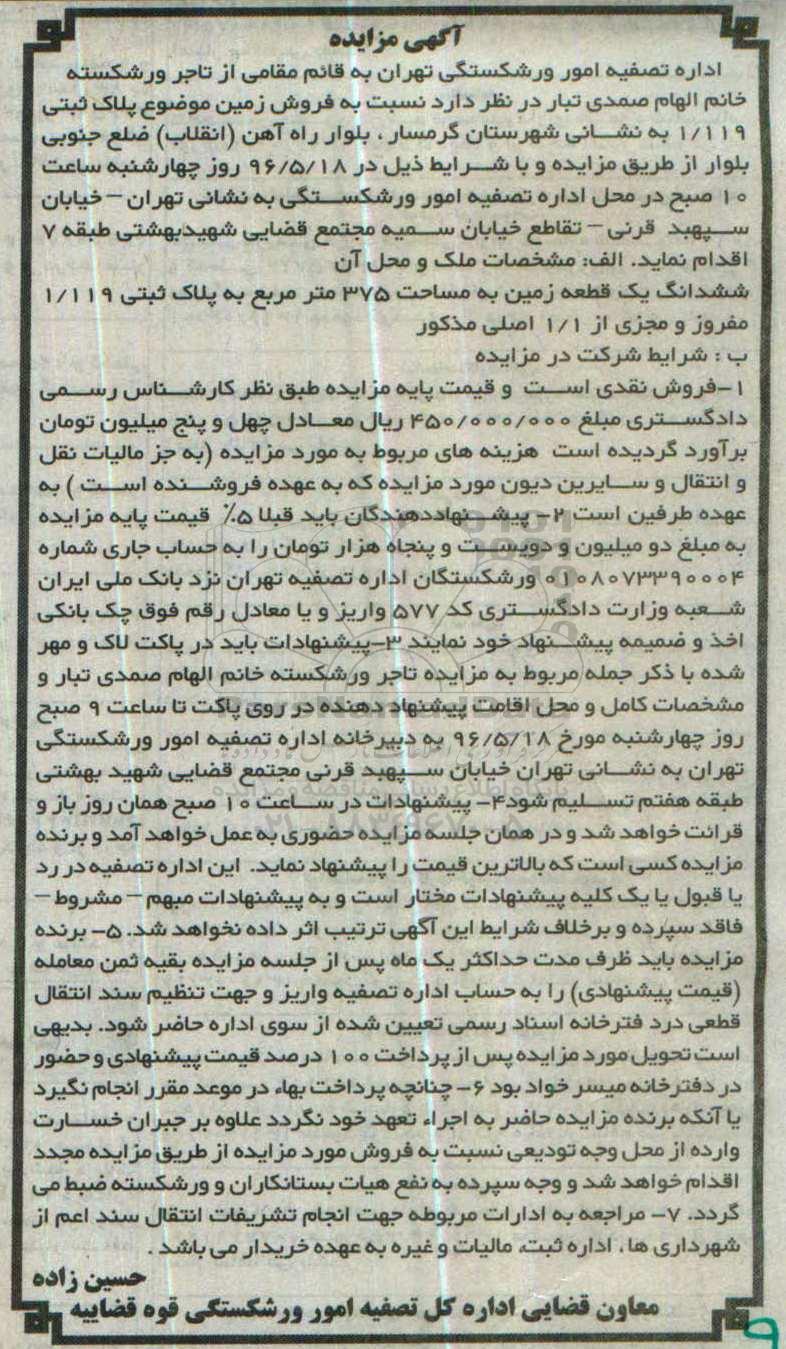 آگهی مزایده
اداره تصفیه امور ورشکستگی تهران به قائم مقامی از تاجر ورشکسته
خانم الهام صمدی تبار در نظر دارد نسبت به فروش زمین موضوع پلاک ثبتی
۱/۱۱۹ به نشانی شهرستان گرمسار ، بلوار راه آهن (انقلاب) ضلع جنوبی
بلوار از طریق مزایده و با شرایط ذیل در ۹۶/۵/۱۸ روز چهارشنبه ساعت
۱۰ صبح در محل اداره تصفیه امور ورشکستگی به نشانی تهران – خیابان
سپهبد قرنی – تقاطع خیابان سمیه مجتمع قضایی شهیدبهشتی طبقه ۷
اقدام نماید. الف: مشخصات ملک و محل آن
ششدانگ یک قطعه زمین به مساحت ۳۷۵ متر مربع به پلاک ثبتی ۱/۱۱۹
مفروز و مجزی از ۱/۱ اصلی مذکور
ب : شرایط شرکت در مزایده
۱-فروش نقدی است و قیمت پایه مزایده طبق نظر کارشناس رسمی
دادگستری مبلغ ۴۵۰/۰۰۰/۰۰۰ ریال معادل چهل و پنج میلیون تومان
برآورد گردیده است هزینه های مربوط به مورد مزایده (به جز مالیات نقل
و انتقال و سایرین دیون مورد مزایده که به عهده فروشنده است ) به
عهده طرفین است ۲- پیشنهاددهندگان باید قبلا ۵٪ قیمت پایه مزایده
به مبلغ دو میلیون و دویست و پنجاه هزار تومان را به حساب جاری شماره
۰۱۰۸۰۷۳۳۹۰۰۰۴ ورشکستگان اداره تصفیه تهران نزد بانک ملی ایران
شعبه وزارت دادگستری کد ۵۷۷ واریز و یا معادل رقم فوق چک بانکی
اخذ و ضمیمه پیشنهاد خود نمایند ۳-پیشنهادات باید در پاکت لاک و مهر
شده با ذکر جمله مربوط به مزایده تاجر ورشکسته خانم الهام صمدی تبار و
مشخصات کامل و محل اقامت پیشنهاد دهنده در روی پاکت تا ساعت ۹ صبح
روز چهارشنبه مورخ ۹۶/۵/۱۸ به دبیرخانه اداره تصفیه امور ورشکستگی
تهران به نشانی تهران خیابان سپهبد قرنی مجتمع قضایی شهید بهشتی
طبقه هفتم تسلیم شود۴- پیشنهادات در ساعت ۱۰ صبح همان روز باز و
قرائت خواهد شد و در همان جلسه مزایده حضوری به عمل خواهد آمد و برنده
مزایده کسی است که بالاترین قیمت را پیشنهاد نماید. این اداره تصفیه در رد
یا قبول یا یک کلیه پیشنهادات مختار است و به پیشنهادات مبهم – مشروط –
فاقد سپرده و برخلاف شرایط این آگهی ترتیب اثر داده نخواهد شد. ۵- برنده
مزایده باید ظرف مدت حداکثر یک ماه پس از جلسه مزایده بقیه ثمن معامله
(قیمت پیشنهادی) را به حساب اداره تصفیه واریز و جهت تنظیم سند انتقال
قطعی درد فترخانه اسناد رسمی تعیین شده از سوی اداره حاضر شود. بدیهی
است تحویل مورد مزایده پس از پرداخت ۱۰۰ درصد قیمت پیشنهادی و حضور
در دفترخانه میسر خواد بود ۶- چنانچه پرداخت بهاء در موعد مقرر انجام نگیرد
یا آنکه برنده مزایده حاضر به اجراء تعهد خود نگردد علاوه بر جبران خسارت
وارده از محل وجه تودیعی نسبت به فروش مورد مزایده از طریق مزایده مجدد
اقدام خواهد شد و وجه سپرده به نفع هیات بستانکاران و ورشکسته ضبط می
گردد. ۷- مراجعه به ادارات مربوطه جهت انجام تشریفات انتقال سند اعم از
شهرداری ها ، اداره ثبت، مالیات و غیره به عهده خریدار می باشد .
حسین زاده
معاون قضایی اداره کل تصفیه امور ورشکستگی قوه قضاییه
۹